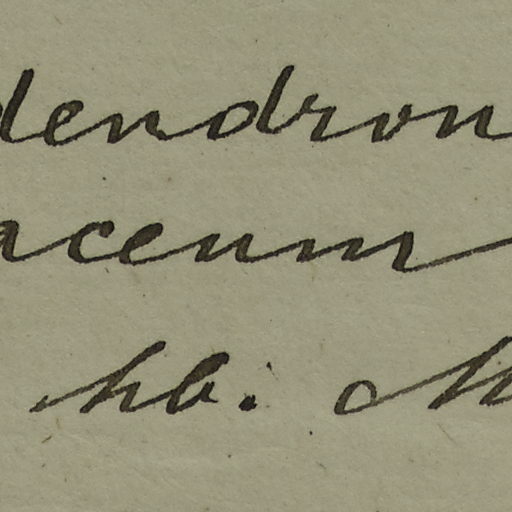 dendron
aceum
hb.